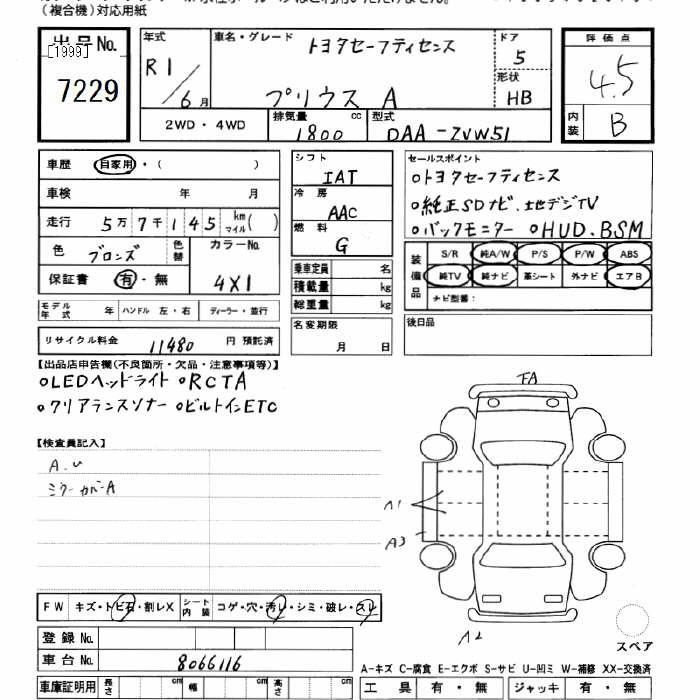 (複合機)対応用紙
出品No.
[1999]
7229
年式 R1/6月
車名・グレード トヨタセーフティセンス
プリウス A
ドア 5
形状 HB
2WD・4WD
排気量 1800 cc
型式 DAA-ZVW51
評価点 4.5
内装 B
車歴 自家用・( )
車検 年 月
走行 5万7千145 km マイル( )
色 ブロンズ 色替 カラーNo. 4X1
保証書 有・無
モデル年式 年 ハンドル 左・右 ディーラー・並行
リサイクル料金 11480 円 預託済
シフト IAT
冷房 AAC
燃料 G
乗車定員 名
積載量 kg
総重量 kg
名変期限 月 日
セールスポイント
○トヨタセーフティセンス
○純正SDナビ.地デジTV
○バックモニター ○HUD.BSM
装備品 S/R 純A/W P/S P/W ABS
純TV 純ナビ 革シート 外ナビ エアB
ナビ型番:
後日品
【出品店申告欄(不良箇所・欠品・注意事項等)】
○LEDヘッドライト ○RCTA
○クリアランスソナー ○ビルトインETC
【検査員記入】
A.U
ミラーカバーA
FA
A1
A3
A2
スペア
FW キズ・トビ石・割レX シート内装 コゲ・穴・汚レ・シミ・破レ・スレ
登録No.
車台No. 8066116
車庫証明用 長さ cm 幅 cm 高さ cm
A-キズ C-腐食 E-エクボ S-サビ U-凹ミ W-補修 XX-交換済
工具 有・無 ジャッキ 有・無